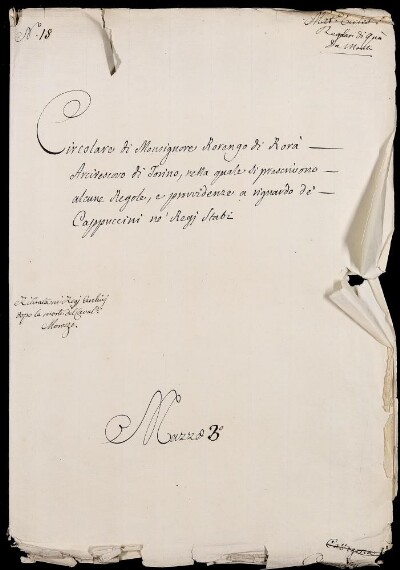 N.º 18
Regolari di quà
da Monti
Circolare di Monsignore Rorengo di Rorà
Arcivescovo di Torino, nella quale si prescrivono
alcune Regole, e provvidenze a riguardo de'
Cappuccini ne' Regj Stati
Regj Archivj
dopo la morte del Caval.e
Morozzo.
Mazzo 3º
Categoria